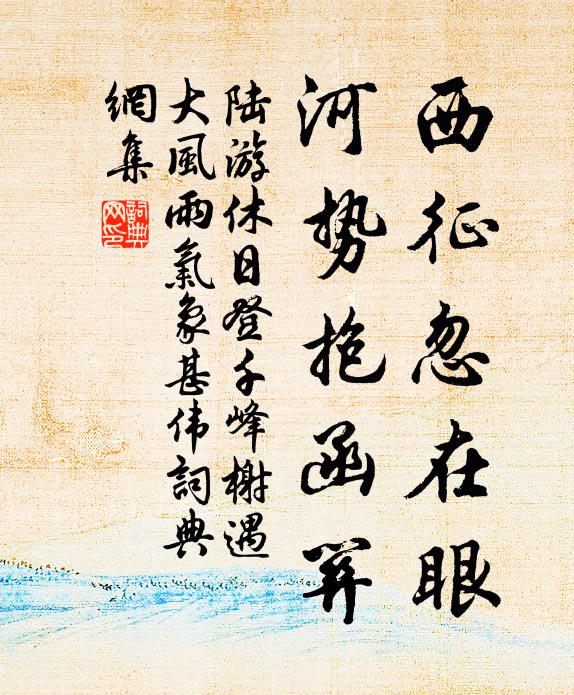 西征忽在眼
河势抱函关
陆游休日登千峰榭遇
大風雨氣象甚伟詞典
網集
詞典网印